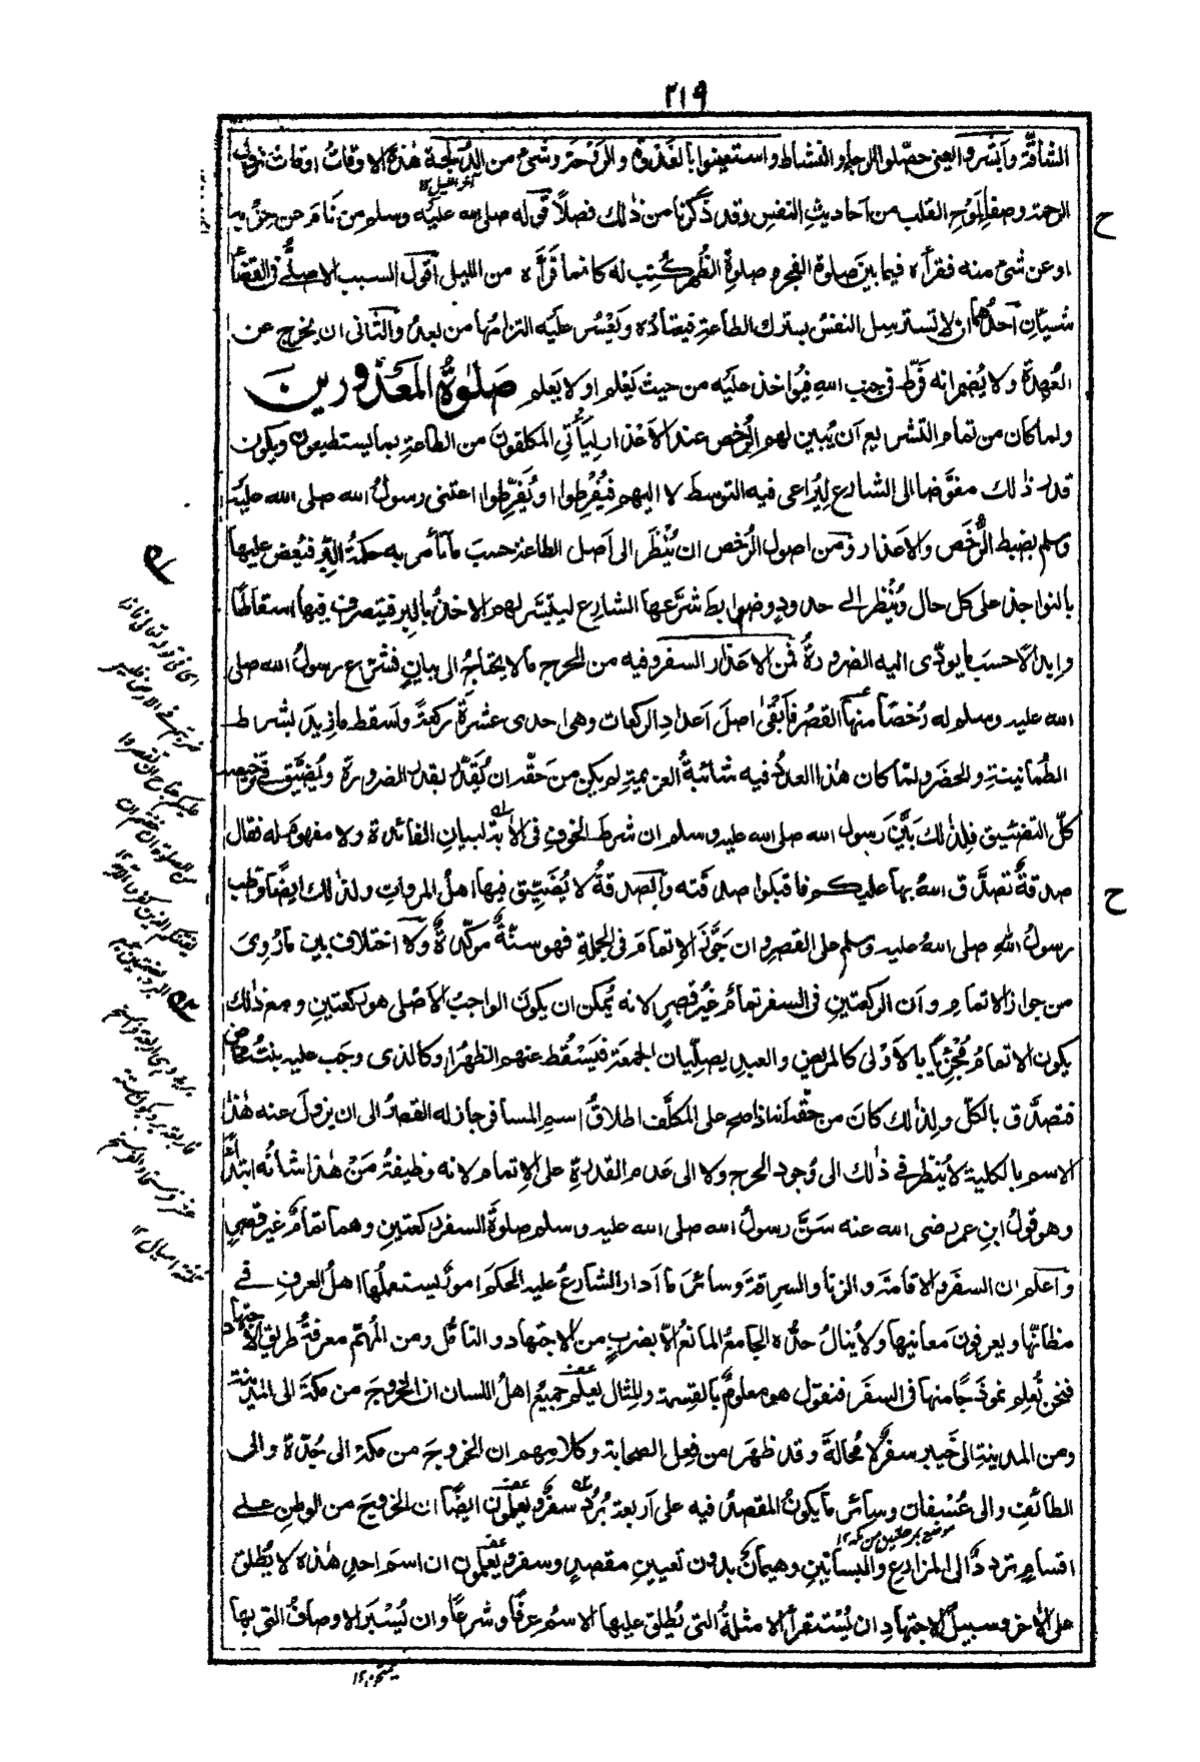 ٢١٩
الشاقّة وأبشروا يعنى حصّلوا الرجاء والنشاط واستعينوا بالغَدْوة والرَوْحة وشئ من الدُلجة هٰذه الاوقاتُ اوقاتُ نزول
اٰخر الليل ١٢
الرحمة وصفاء لَوح القلب من أحاديث النفس وقد ذكرنا من ذٰلك فصلاً قوله صلى الله عليه وسلم من نَامَ عن حزبه
او عن شئ منه فقرأه فيما بين صلوة الفجر وصلوة الظهر كُتِب له كانما قرأه من الليل أقول السبب الاصلىُّ فى القضاء
شيئان أحدُهما ان لا تسترسل النفسُ بترك الطاعة فيعتاده ويَعْسُر عليه التزامُها من بعدُ والثانى ان يخرج عن
العُهدة ولا يُضمر انه فَرّط فى جنب الله فيُؤاخذ عليه من حيث يَعْلم او لا يَعلم صَلوٰةُ المَعْذورين
ولما كان من تمام التشريع أن يُبين لهم الرُّخص عند الأعْذار ليأتى المكلفونَ من الطاعة بما يستطيعون ويكون
قدر ذٰلك مفوّضا الى الشارع لِيُراعى فيه التوسط لا اليهم فيُفْرِطوا او يُفَرِّطوا اعتنى رسولُ الله صلى الله عليه
وسلم بضبط الرُّخَص والاعذار ومن اصول الرُخص ان يُنْظَر الى أصل الطاعة حسبَ ما تأمر به حكمةُ البِرّ فيُعَض عليها
بالنواجذ على كل حال ويُنظر الى حدود وضوابط شرَّعها الشارع ليتيسَّر لهم الاخذُ بالبر فيتصرف فيها اسقاطًا
وابدالًا حسب ما يودّى اليه الضرورةُ فمن الاعذار السفر وفيه من الحرج ما لا يحتاجُ الى بيانٍ فشرَع رسولُ الله صلى
الله عليه وسلم له رُخصًا منها القصرُ فأبقىٰ اصلَ أعدادِ الركعات وهى احدى عشرةَ ركعةً وأسقط ما زِيدَ بشرط
الطُمانينةِ والحضَر ولمّا كان هٰذا العددُ فيه شائبةُ العزيمة لم يكن من حقّه ان يُقدَّر بقدر الضرورة ويُضيَّق فى ترخيصه
كلّ التضييق فلِذٰلك بَيَّن رسول الله صلى الله عليه وسلم ان شرط الخوف فى الأية لبيان الفائدة ولا مفهوم له فقال
صدقةٌ تصدّق اللهُ بها عليكم فاقبلوا صدقته والصدقةُ لا يُضَيِّق فيها اهلُ المروات ولذٰلك ايضًا واظب
رسولُ الله صلى اللهُ عليه وسلم على القصر وان جَوَّز الإتمامَ فى الجملة فهو سنّةٌ موكّدةٌ ولا اختلاف بين ما رُوِىَ
من جواز الاتمام وأن الركعتين فى السفر تمامٌ غيرُ قصرٍ لانه يُمكن ان يكونَ الواجبُ الأصلى هو ركعتين ومع ذٰلك
يكون الاتمامُ مُجْزِيًا بالأولى كالمريض والعبد يصلّيان الجمعةَ فيَسْقُط عنهم الظهرُ او كالذى وجَب عليه بنتُ مخاضٍ
فتصدّق بالكلّ ولذٰلك كانَ من حقّه أنه اذا صح على المكلَّف اطلاقُ اسم المسافر جاز له القصرُ الى ان يزولَ عنه هٰذا
الاسم بالكلية لا يُنظر فى ذٰلك الى وُجود الحرج ولا الى عَدم القدرة على الإتمام لانه وظيفةُ مَنْ هٰذا شأنُه ابتداءً
وهو قولُ ابنِ عمر رضى الله عنه سَنّ رسولُ الله صلى الله عليه وسلم صلوةَ السفر ركعتين وهما تمامٌ غير قصرٍ
وأعلم ان السفَر والاقامة والزنا والسرقةَ وسائرَ ما أدار الشارعُ عليه الحكم امورٌ يستعملُها اهلُ العرفِ فى
مظانّها ويعرفونَ معانيها ولا يُنالُ حدُّه الجامعُ المانعُ الّا بضربٍ من الاجتهاد والتأمّل ومن المُهمّ معرفةُ طريق الاجتهاد
فنحن نُعلِم نموذَجًا منها فى السفَر فنقول هو معلومٌ بالقِسمة والمثال يعلَم جميعُ اهلُ اللسان ان الخروجَ من مكة الى المدينة
ومن المدينةِ الى خيبر سفرٌ لا محالةَ وقد ظهَرَ من فعل الصحابة وكلامِهم ان الخروجَ من مكة الى جُدّة والى
الطائفِ والى عُسْفان وسائر ما يكونُ المقصدُ فيه على أربعةِ بُرُدٍ سفرٌ ويعلمون ايضًا ان الخروجَ من الوطنِ على
موضع بمرحلتين من مكة ١٢
اقسامٍ تردّدٌ الى المزارع والبساتينِ وهيمانٌ بدون تعيين مقصدٍ وسفر ويعلمون ان اسمَ احدِ هٰذه لا يُطلق
على الأخر وسبيلُ الاجتهاد ان يُسْتقرأ الامثلةُ التى يُطلق عليها الاسمُ عرفًا وشرعًا وان يُسْبَر الاوصافُ التى بها
ح
ح